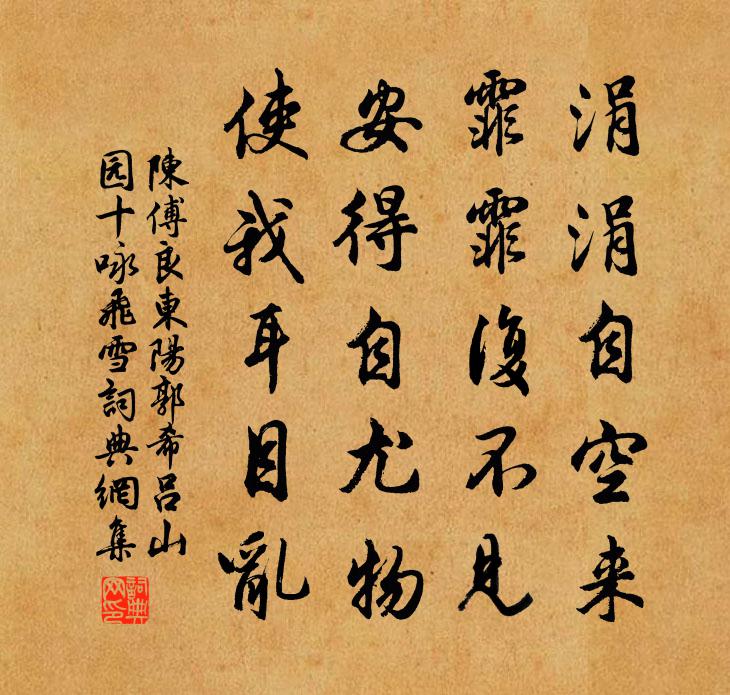 涓涓自空来
霏霏復不見
安得自尤物
使我耳目亂
陳傅良東陽郭希吕山
园十咏飛雪詞典網集
詞典網印